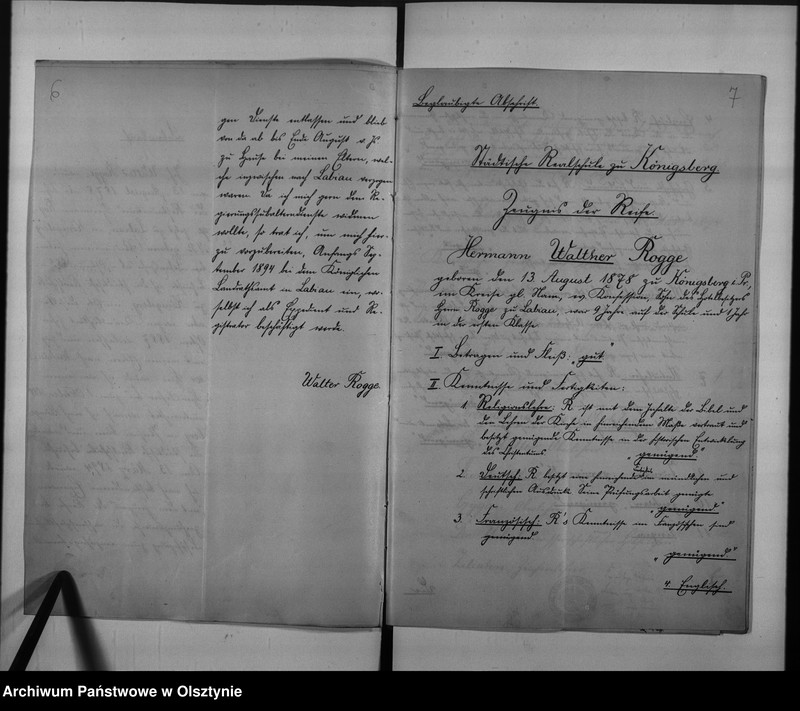 6
gen Dienste entlassen und blieb
von da ab bis Ende August v Js
zu Hause bei meinen Eltern, wel-
che inzwischen nach Labiau verzogen
waren Da ich mich gern dem Re-
gierungssubalterndienste widmen
wollte, so trat ich, um mich hier-
zu vorzubereiten, Anfangs Sep-
tember 1894 bei dem Königlichen
Landratsamt in Labiau ein, wo-
selbst ich als Expedient und Re-
gistrator beschäftigt werde.
Walter Rogge.
7
Beglaubigte Abschrift.
Städtische Realschule zu Königsberg
Zeugnis der Reife.
Hermann Walther Rogge
geboren den 13 August 1878 zu Königsberg i. Pr,
im Kreise gl. Nam, ev Konfession, Sohn des
Herrn Rogge zu Labiau, war 9 Jahre auf der Schule und 1 Jahr
in der ersten Klasse
I. Betragen und Fleiß: „gut“
II. Kenntnisse und Fertigkeiten:
1 Religionslehre: R ist mit dem Inhalte der Bibel und
der Lehren der Kirche in hinreichendem Maße vertraut und
besitzt genügende Kenntnisse in der historischen Entwicklung
des Christentums „genügend.“
2 Deutsch: R besitzt eine hinreichende im mündlichen und
schriftlichen Ausdruck Seine Prüfungsarbeit genügte
„genügend“
3. Französisch: R's Kenntnisse im Französischen sind
genügend
„genügend“
4. Englisch.
Archiwum Państwowe w Olsztynie